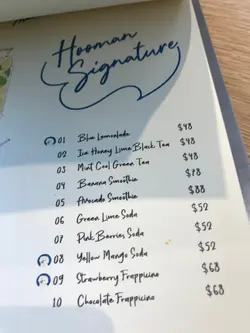 Hooman
Signature
01 Blue Lemonade $48
02 Ice Honey Lime Black Tea $48
03 Mint Cool Green Tea $48
04 Banana Smoothie $78
05 Avocado Smoothie $88
06 Green Lime Soda $52
07 Pink Berries Soda $52
08 Yellow Mango Soda $52
09 Strawberry Frappicino $68
10 Chocolate Frappicino $68